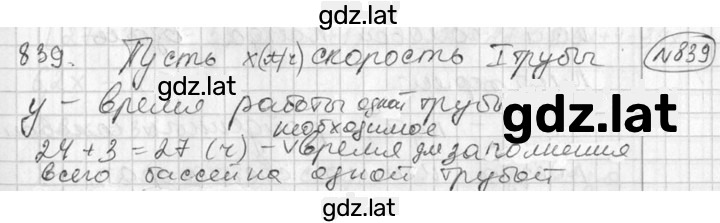 gdz.lat
839. Пусть x(л/ч) скорость I трубы №839
gdz.lat
y - время работы одной трубы
gdz.lat
необходимое
24 + 3 = 27 (ч) - √ время для заполнения
всего бассейна одной трубой
gdz.lat